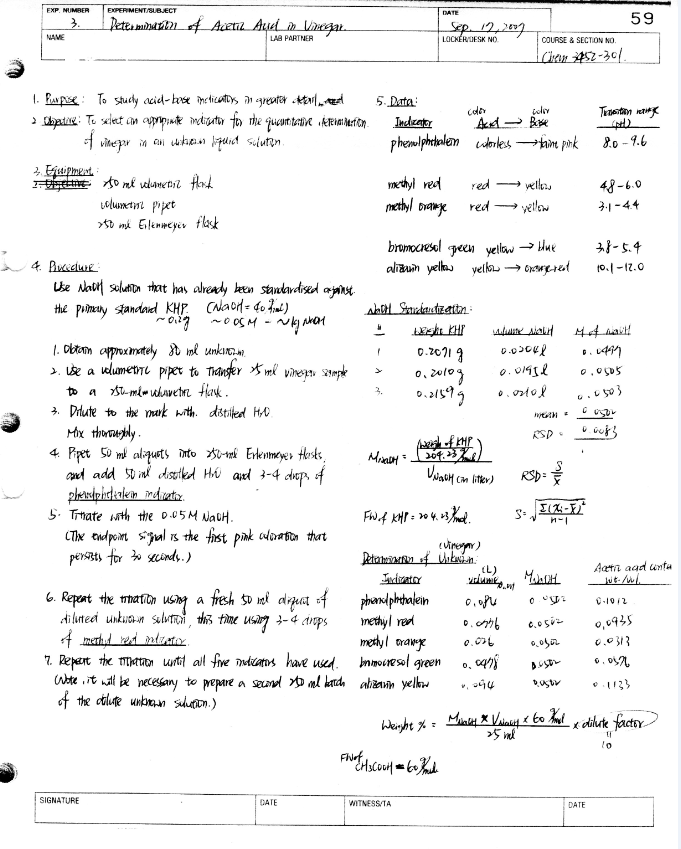 EXP. NUMBER
3.
EXPERIMENT/SUBJECT
Determination of Acetic Acid in Vinegar.
DATE
Sep. 17, 2007
59
NAME
LAB PARTNER
LOCKER/DESK NO.
COURSE & SECTION NO.
Chem 3452-301
1. Purpose: To study acid-base indicators in greater detail
2. Objective: To select an appropriate indicator for the quantitative determination
of vinegar in an unknown liquid solution.
3. Equipment:
2. Objective: 250 ml volumetric flask
volumetric pipet
250 ml Erlenmeyer flask
4. Procedure:
Use NaOH solution that has already been standardised against
the primary standard KHP. (NaOH = 40 g/mol)
~0.2g ~0.05M - ~1g NaOH
1. Obtain approximately 80 ml unknown.
2. Use a volumetric pipet to transfer 25 ml vinegar sample
to a 250-ml volumetric flask.
3. Dilute to the mark with distilled H2O
Mix thoroughly.
4. Pipet 50 ml aliquots into 250-ml Erlenmeyer flasks
and add 50 ml distilled H2O and 3-4 drops of
phenolphthalein indicator.
5. Titrate with the 0.05 M NaOH.
(The endpoint signal is the first pink coloration that
persists for 30 seconds.)
6. Repeat the titration using a fresh 50 ml aliquot of
diluted unknown solution, this time using 3-4 drops
of methyl red indicator.
7. Repeat the titration until all five indicators have used.
(Note, it will be necessary to prepare a second 250 ml batch
of the dilute unknown solution.)
5. Data:
color color Transition range
Indicator Acid → Base (pH)
phenolphthalein colorless → faint pink 8.0-9.6
methyl red red → yellow 4.8-6.0
methyl orange red → yellow 3.1-4.4
bromocresol green yellow → blue 3.8-5.4
alizarin yellow yellow → orange-red 10.1-12.0
NaOH Standardization:
# Weight KHP Volume NaOH M of NaOH
1 0.2071 g 0.0204 l 0.0497
2 0.2010 g 0.0195 l 0.0505
3. 0.2159 g 0.0210 l 0.0503
mean = 0.0502
RSD = 0.0083
M NaOH = (Weigh of KHP / 204.23 g/mol) / V NaOH (in litter)
RSD = S/x̄
FW of KHP = 204.23 g/mol.
S = √(Σ(xi-x̄)²/n-1)
(Vinegar)
Determination of Unknown:
Indicator volume (L) M NaOH Acetic acid conta
wt./vol.
phenolphthalein 0.084 0.0502 0.1012
methyl red 0.0776 0.0502 0.0935
methyl orange 0.026 0.0502 0.0313
bromocresol green 0.0478 0.0502 0.0576
alizarin yellow 0.094 0.0502 0.1133
Weight % = M NaOH × V NaOH × 60 g/mol / 25 ml × dilute factor
=
10
FW of CH3COOH = 60 g/mol
SIGNATURE
DATE
WITNESS/TA
DATE